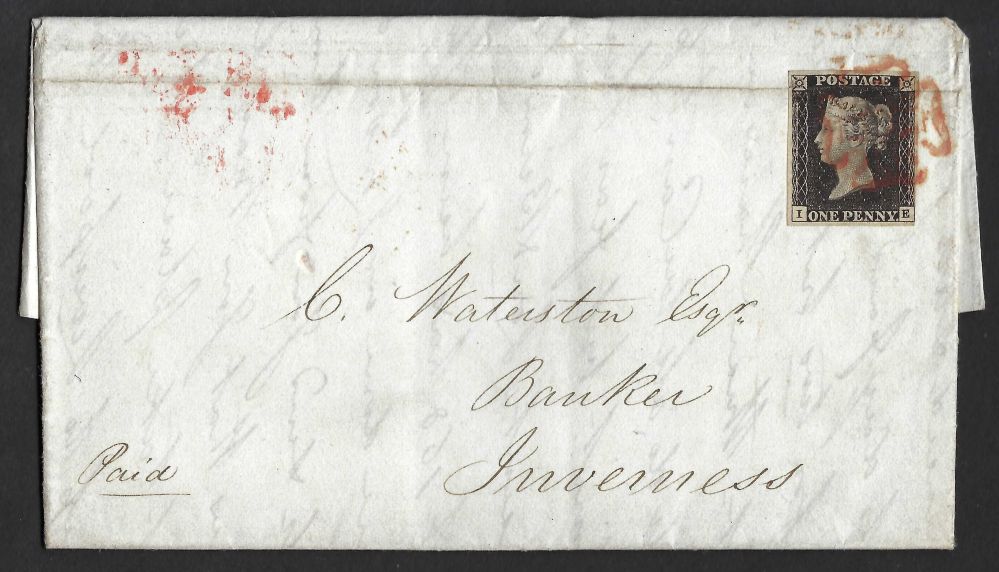 POSTAGE
I ONE PENNY E
C. Waterston Esqr.
Banker
Inverness
Paid